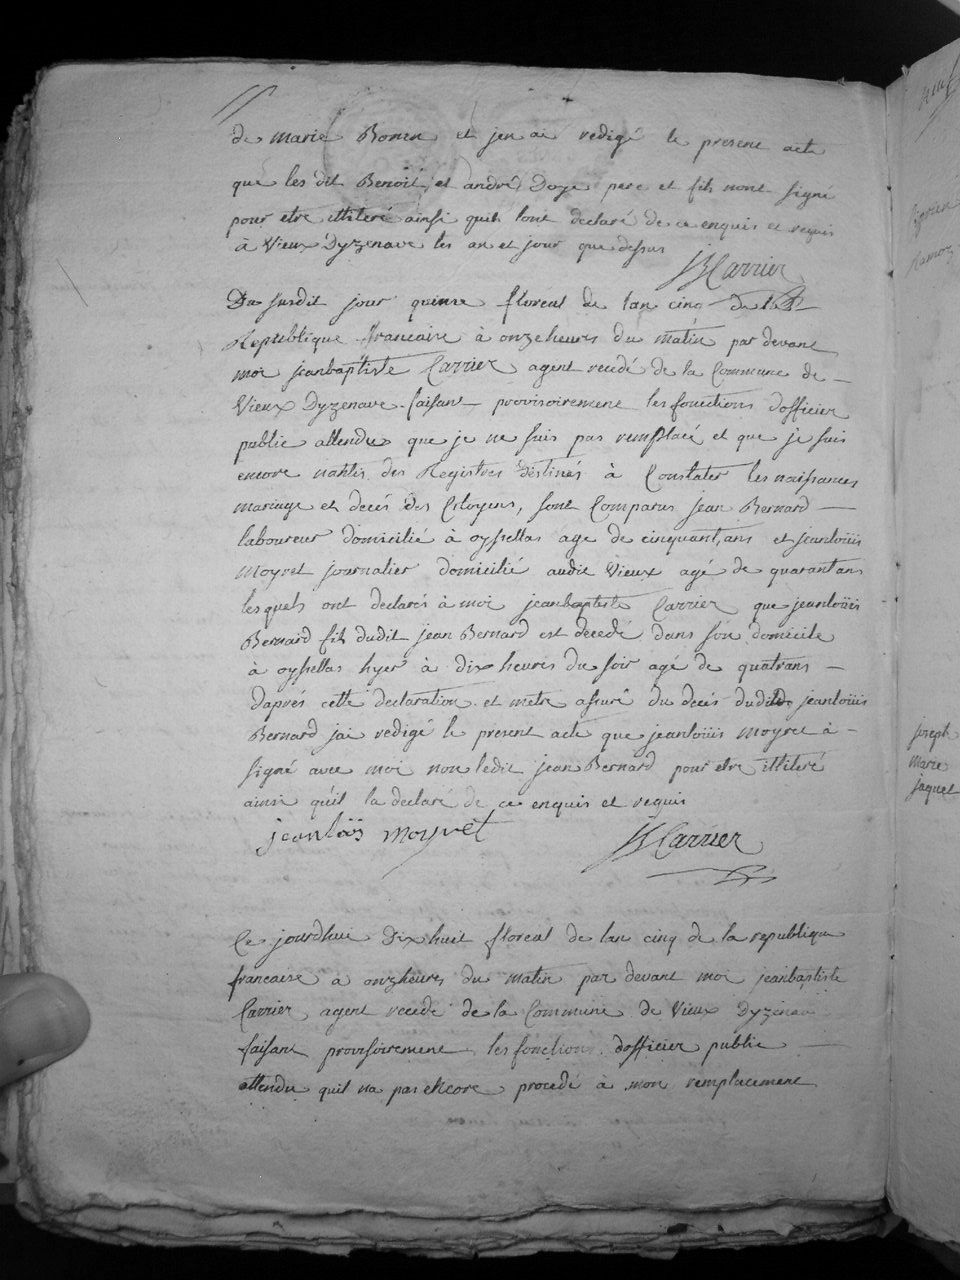 de marie Bonin et jen ai redigé le present acte
que les dit Benoit et andré Doge pere et fils nont signé
pour etre illiteré ainsi quils lont declaré de ce enquis et requis
à Vieux Dyzenave les an et jour que dessus
JBCarrier
Du susdit jour quinze floreal de lan cinq de la
Republique francaise à onze heures du matin par devant
moi jeanbaptiste Carrier agent recedé de la Commune de
Vieux Dyzenave faisant provisoirement les fonctions dofficier
public attendu que je ne suis pas remplacé et que je suis
encore nantis des Registres destinés à Constater les naissances
mariage et decés des Citoyens, sont Comparus jean Bernard
laboureur domicilié à oyssellas age de cinquant, ans et jeanloüis
Moyret journalier domicilié audit Vieux agé de quarantans
lesquels ont declarés à moi jeanbaptiste Carrier que jeanloüis
Bernard fils dudit jean Bernard est decedé dans son domicile
à oyssellas hyer à dix heures du soir agé de quatrans
daprés cette declaration et metre assuré du decés dudit jeanloüis
Bernard jai redigé le present acte que jeanloüis Moyret à
signé avec moi non ledit jean Bernard pour etre illiteré
ainsi qu'il la declaré de ce enquis et requis
jeanloüs moyret JBCarrier
Ce jourdhui Dix huit floreal de lan cinq de la republique
francaise a onzheures du matin par devant moi jeanbaptiste
Carrier agent recedé de la Commune de Vieux Dyzenave
faisant provisoirement les fonctions dofficier public
attendu quil na pas encore procedé à mon remplacement
joseph
marie
jaquet